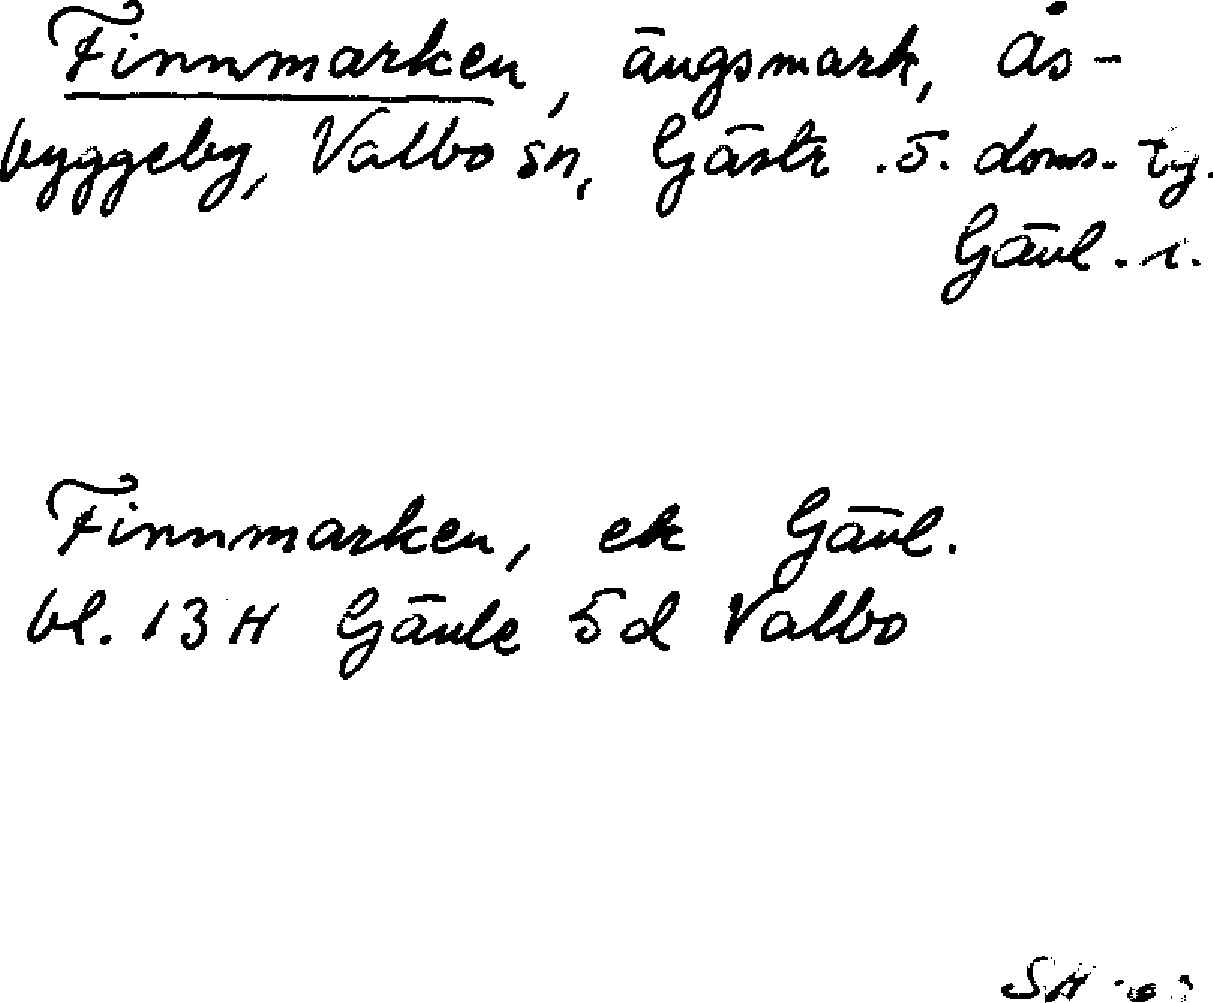 Finnmarken, ängsmark, Ås-
byggeby, Valbo sn, Gästr. ö. doms.
Gävl. l.
Finnmarken, ek Gävl.
bl. 13 H Gävle 5d Valbo
SH